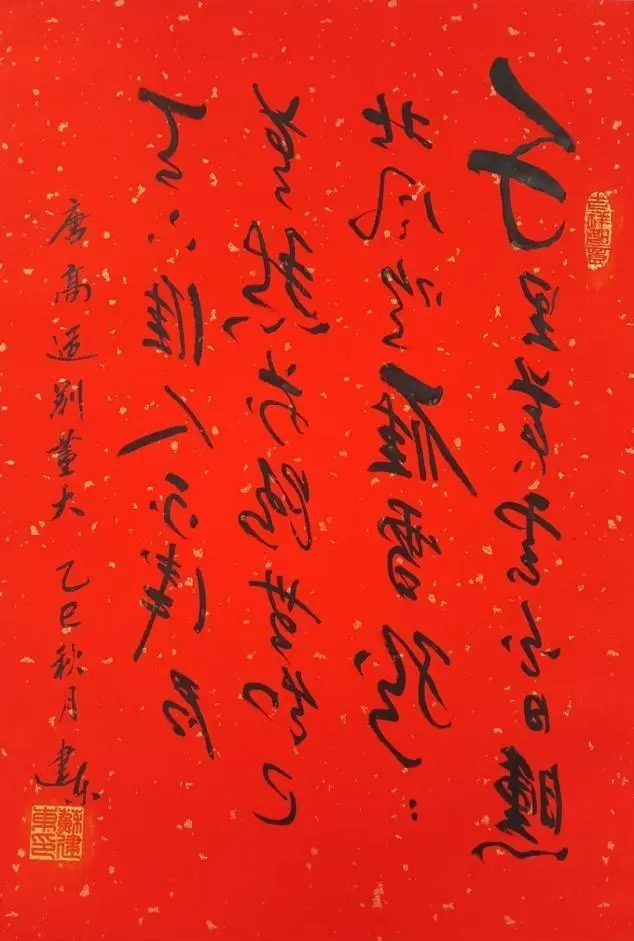 千里黄云白日曛
北风吹雁雪纷纷
莫愁前路无知己
天下谁人不识君
唐高适别董大 乙巳秋月 建东
吉祥如意
苏建东印